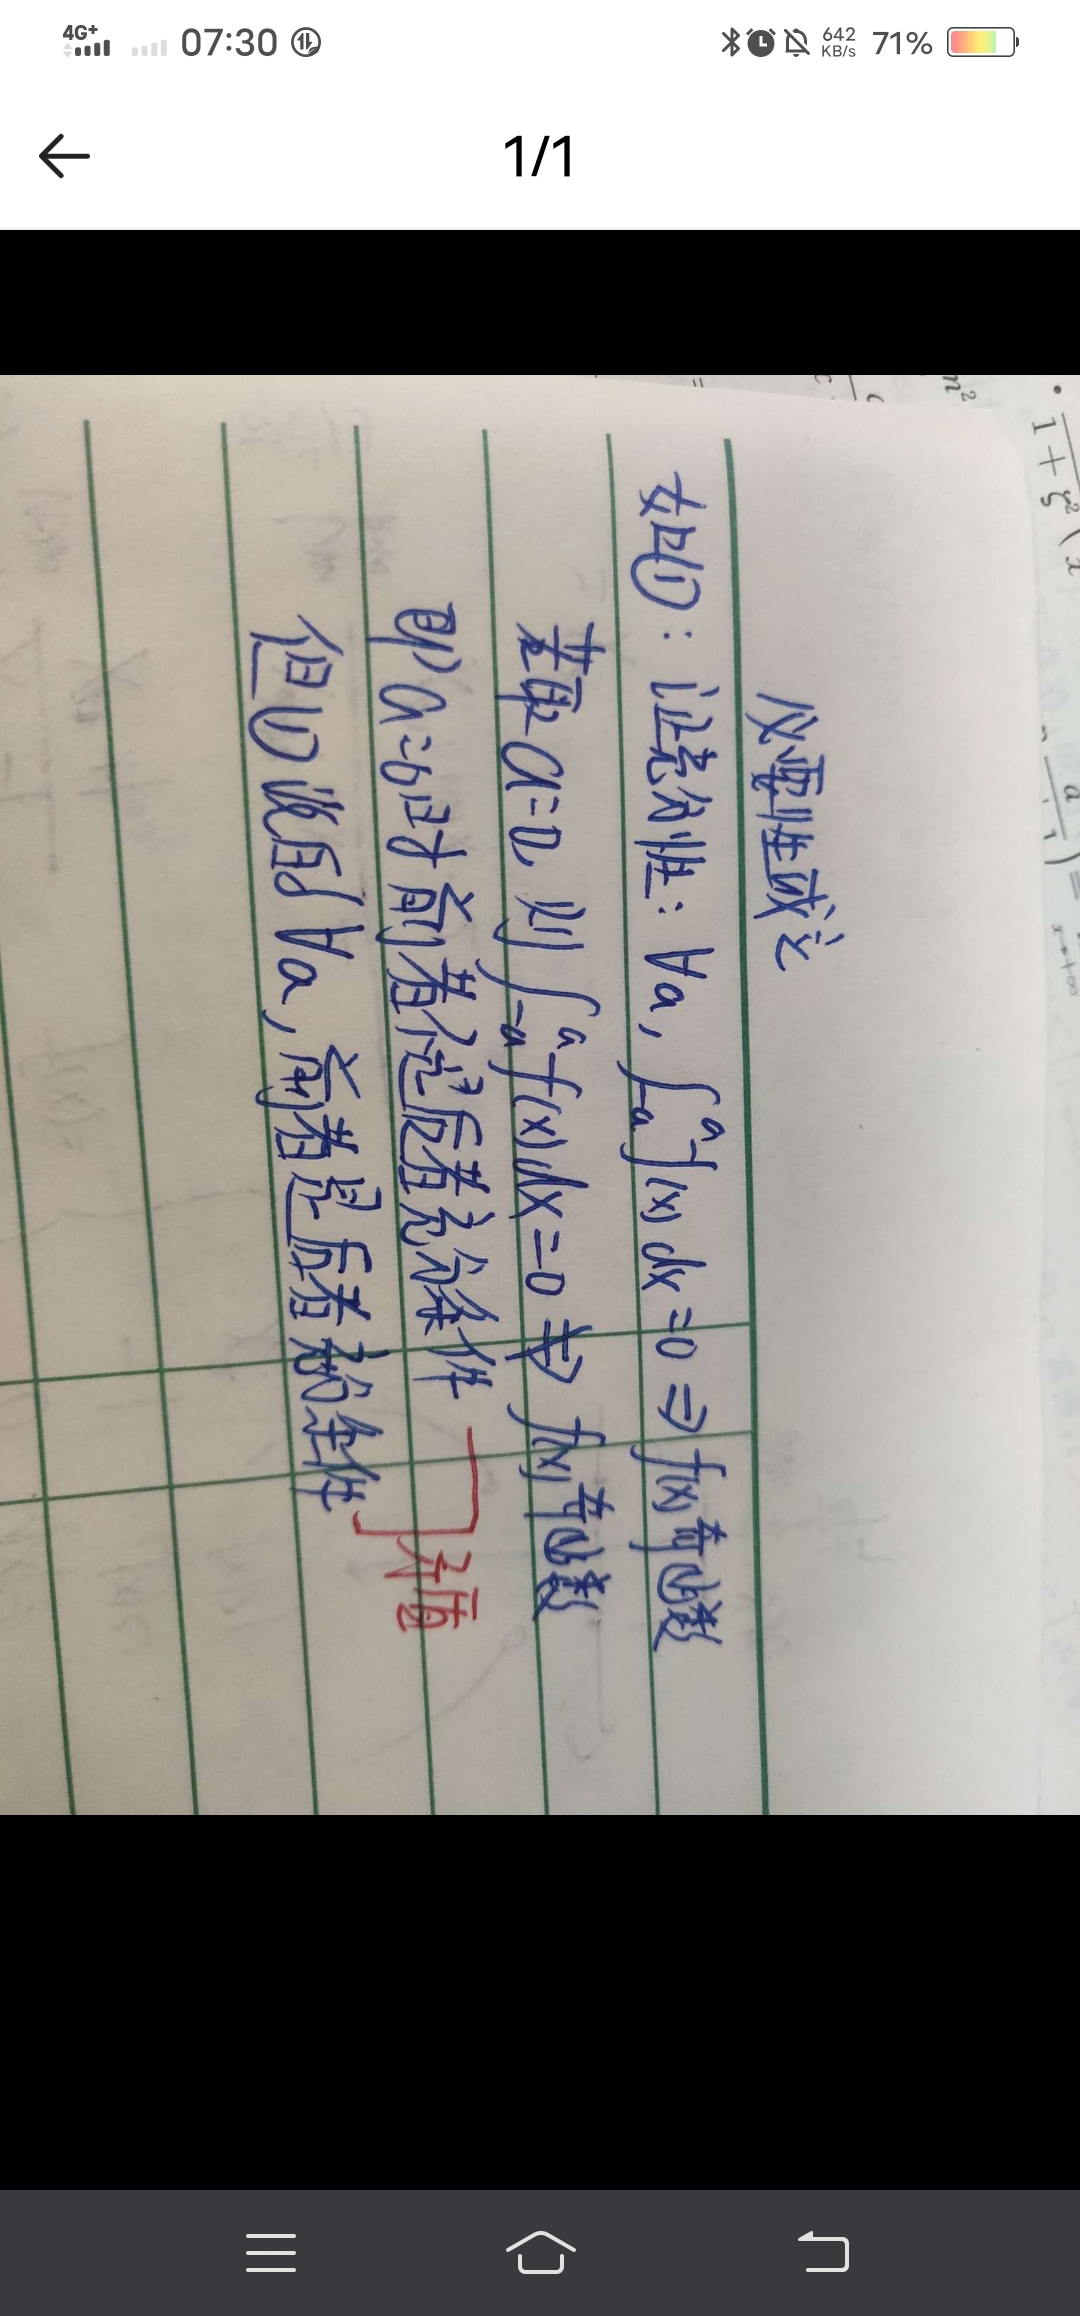 4G+ 07:30 642 KB/s 71%
1/1
必要性成立
如(1)：证充分性：∀a，∫₋ₐᵃ f(x)dx=0 ⇒ f(x)奇函数
若取a=2，则∫₋ₐᵃ f(x)dx=0 ⇏ f(x)奇函数
即a=b时前者不是后者充分条件
但(1)说明∀a，前者是后者充分条件
矛盾